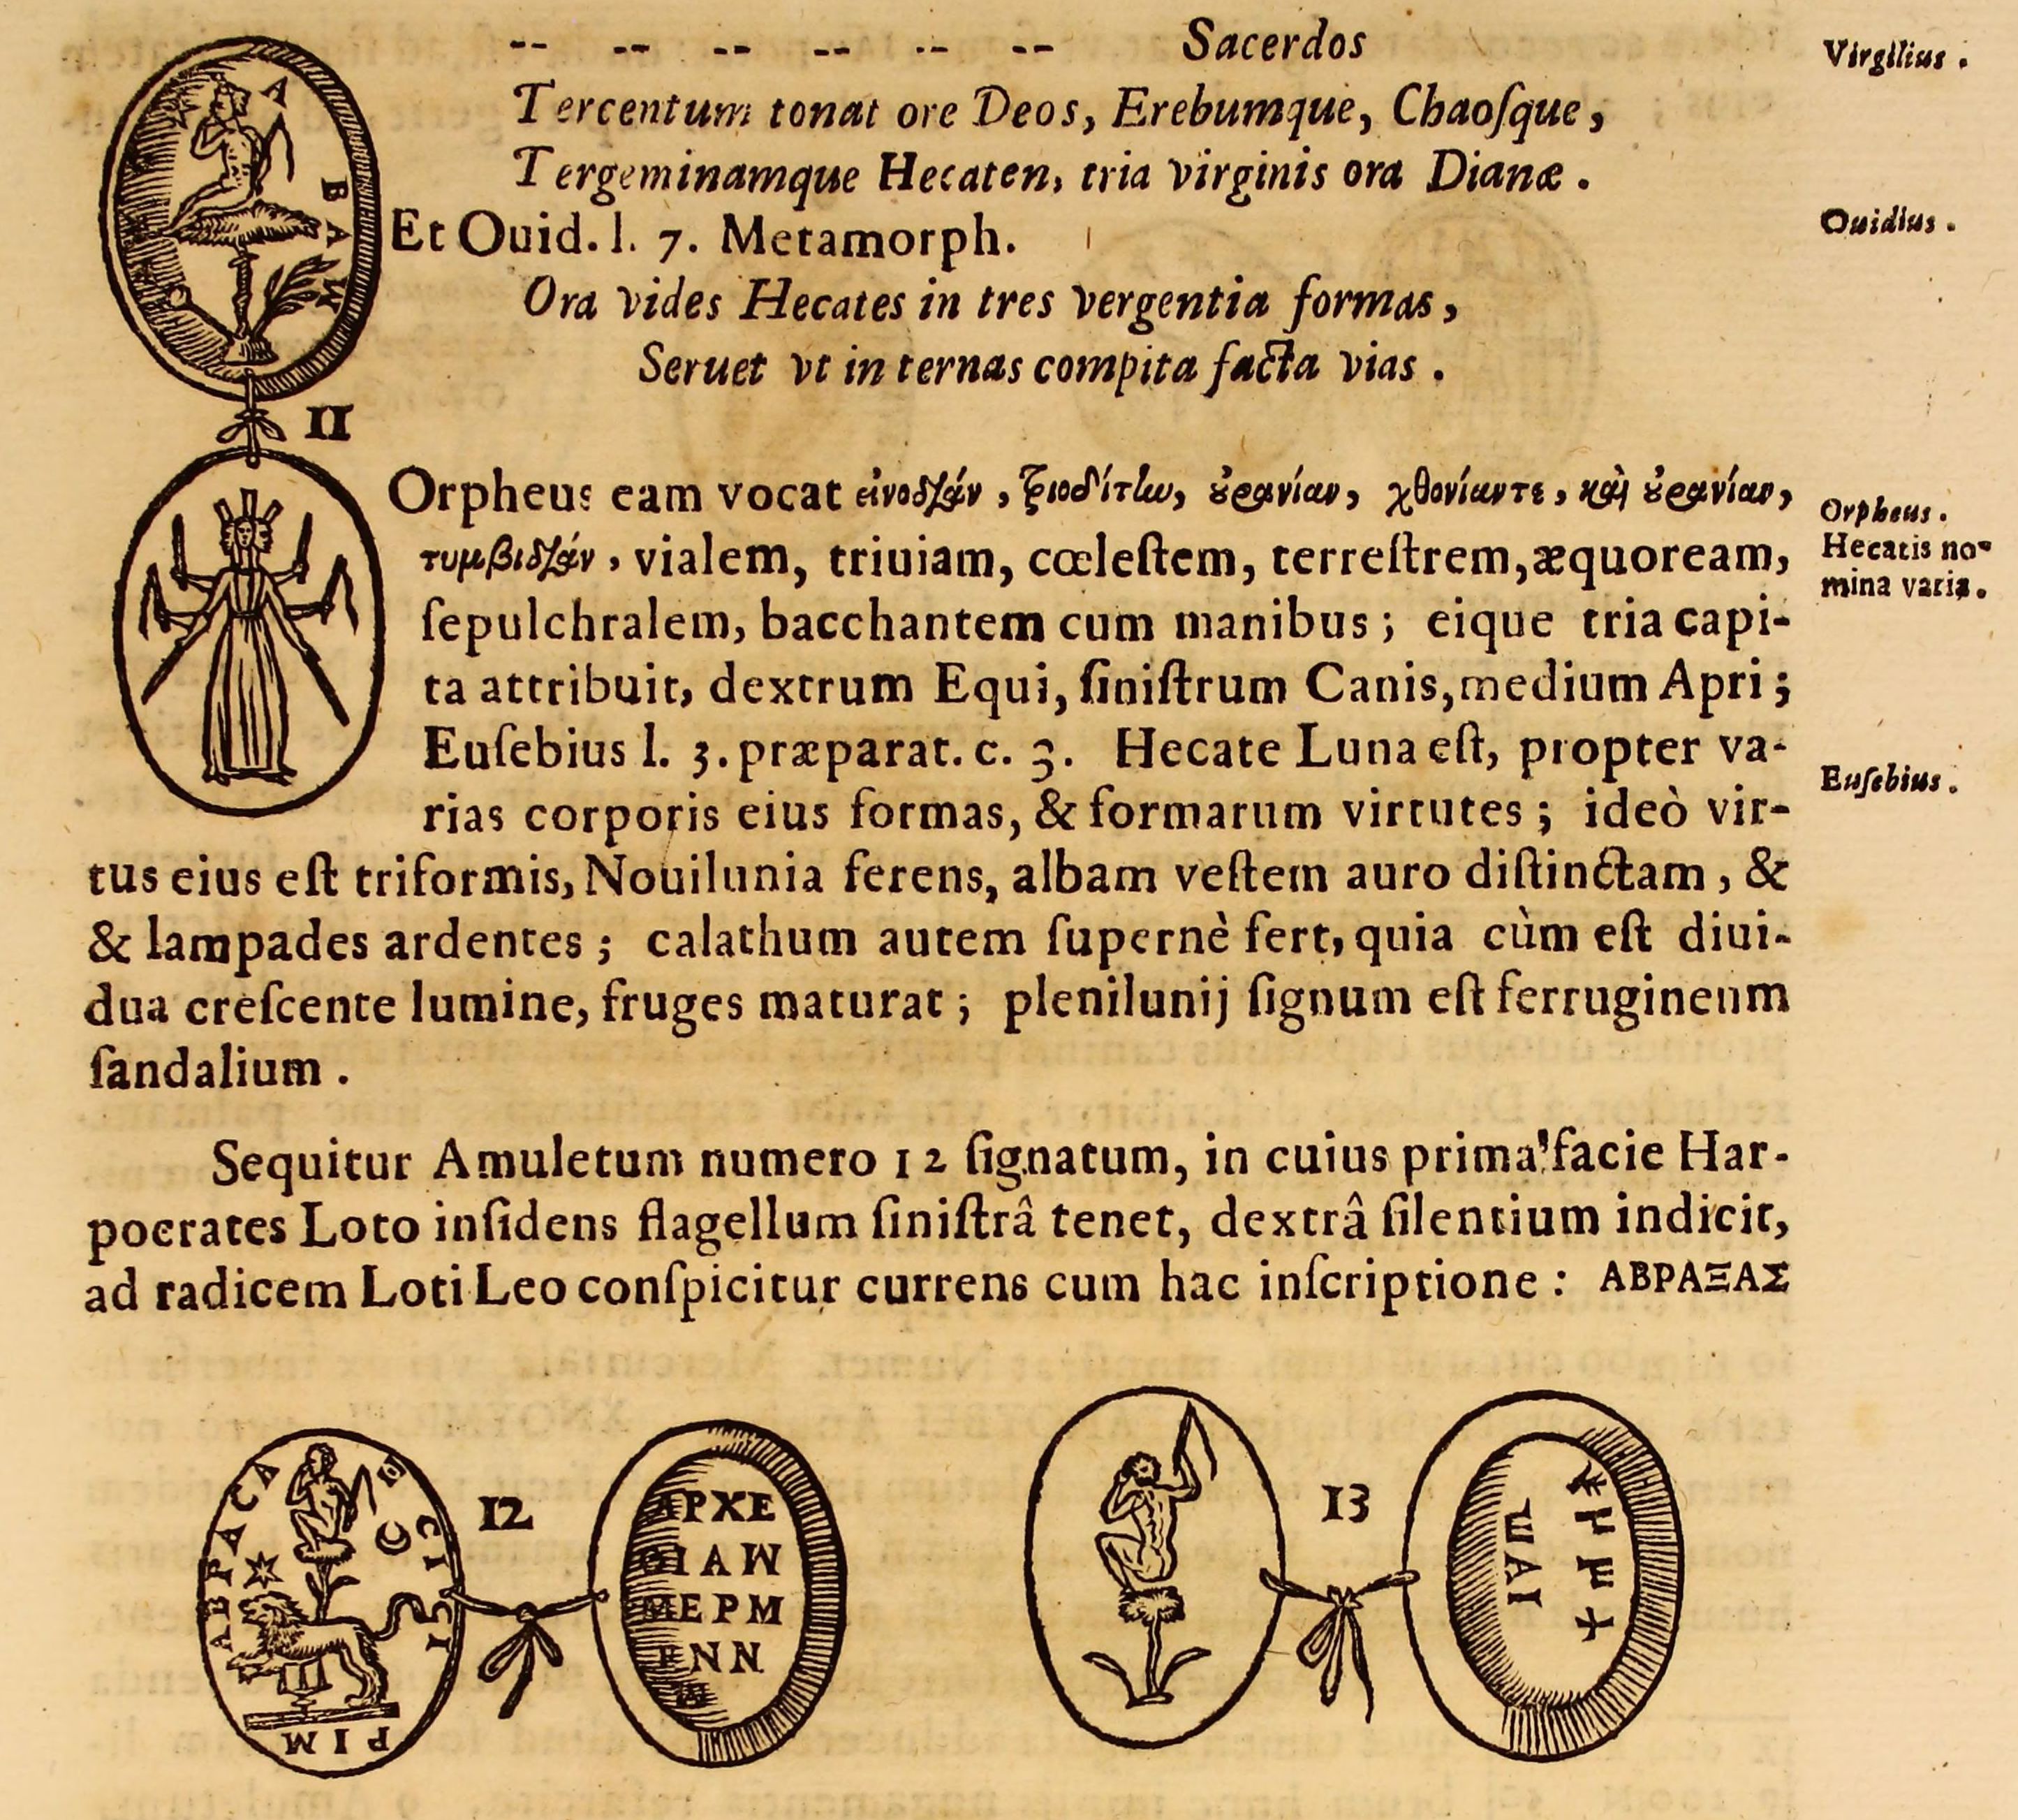 -- -- -- -- -- -- Sacerdos
Virgilius.
Tercentum tonat ore Deos, Erebumque, Chaoſque,
Tergeminamque Hecaten, tria virginis ora Dianæ.
Et Ouid. l. 7. Metamorph.
Ouidius.
Ora vides Hecates in tres vergentia formas,
Seruet vt in ternas compita facta vias.
A
B
A
W
11
Orpheus eam vocat εἰνοδίαν, τριοδίτην, ȣ̓ρανίαν, χθονίαντε, καὶ ȣ̓ρανίαν,
Orpheus.
τυμβιδίαν, vialem, triuiam, cœleſtem, terreſtrem, æquoream,
Hecatis no-
mina varia.
ſepulchralem, bacchantem cum manibus; eique tria capi-
ta attribuit, dextrum Equi, ſiniſtrum Canis, medium Apri;
Euſebius l. 3. præparat. c. 3. Hecate Luna eſt, propter va-
Euſebius.
rias corporis eius formas, & formarum virtutes; ideò vir-
tus eius eſt triformis, Nouilunia ferens, albam veſtem auro diſtinctam, &
& lampades ardentes; calathum autem ſupernè fert, quia cùm eſt diui-
dua creſcente lumine, fruges maturat; plenilunij ſignum eſt ferrugineum
ſandalium.
Sequitur Amuletum numero 12 ſignatum, in cuius prima facie Har-
pocrates Loto inſidens flagellum ſiniſtrâ tenet, dextrâ ſilentium indicit,
ad radicem Loti Leo conſpicitur currens cum hac inſcriptione: ΑΒΡΑΞΑΣ
ABPACA
12
APXE
IAW
MEPM
NN
13
ΨAI